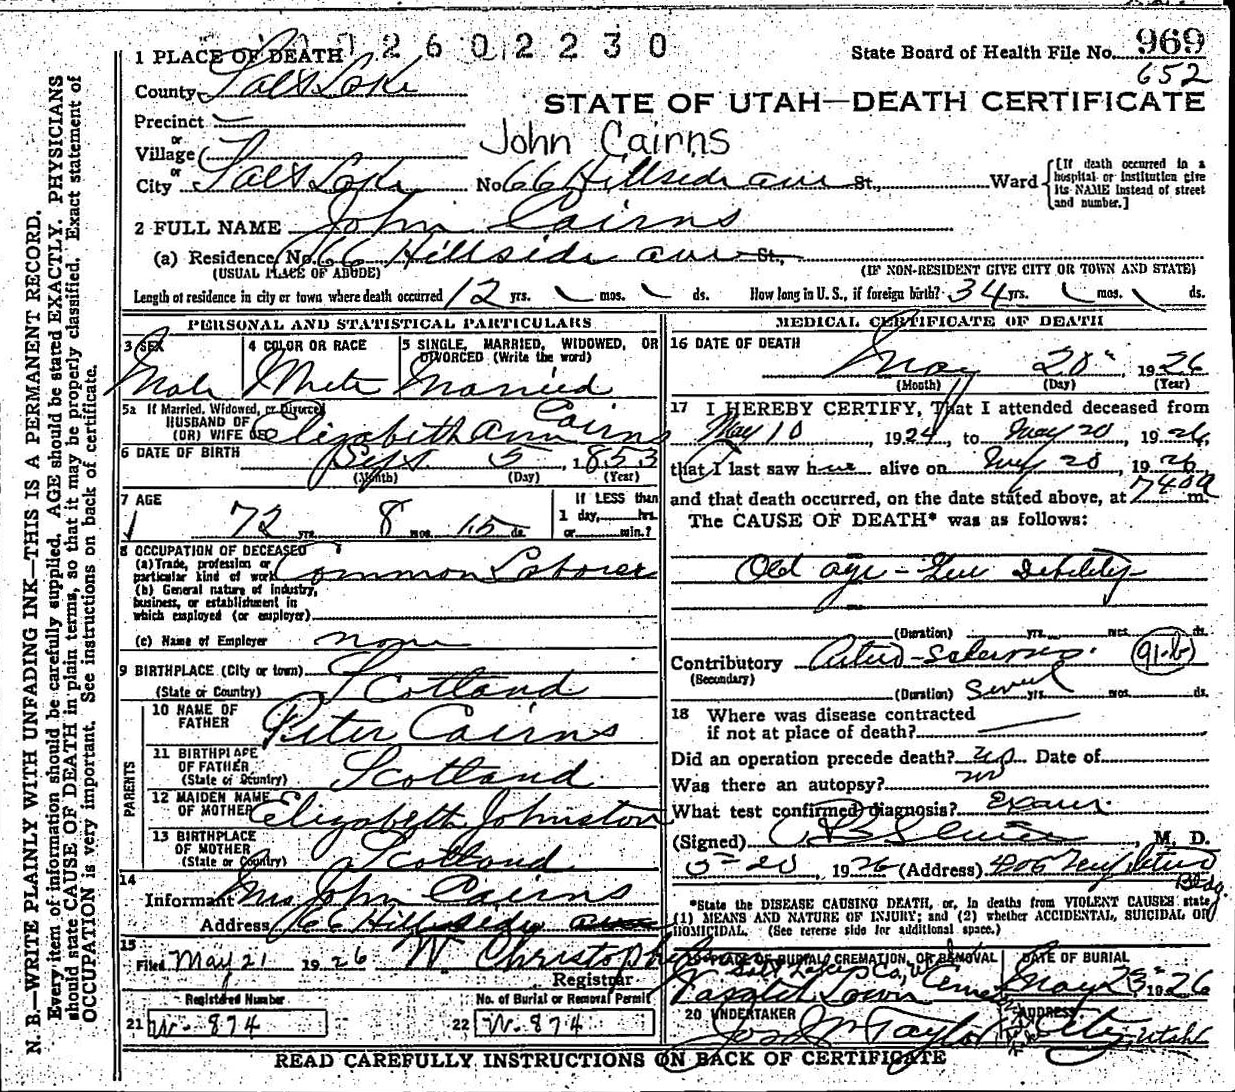 026 02230
State Board of Health File No. 969
652
1 PLACE OF DEATH
County Salt Lake
STATE OF UTAH—DEATH CERTIFICATE
Precinct
or
Village
John Cairns
or
City Salt Lake No. 66 Hillside ave St., Ward
[If death occurred in a hospital or institution give its NAME instead of street and number.]
2 FULL NAME John Cairns
(a) Residence No. 66 Hillside ave St.,
(USUAL PLACE OF ABODE) (IF NON-RESIDENT GIVE CITY OR TOWN AND STATE)
Length of residence in city or town where death occurred 12 yrs. mos. ds. How long in U. S., if foreign birth? 34 yrs. mos. ds.
PERSONAL AND STATISTICAL PARTICULARS
3 SEX 4 COLOR OR RACE 5 SINGLE, MARRIED, WIDOWED, OR DIVORCED (Write the word)
Male White Married
5a If Married, Widowed, or Divorced
HUSBAND OF
(OR) WIFE OF Elizabeth Ann Cairns
6 DATE OF BIRTH Sept 5, 1853
(Month) (Day) (Year)
7 AGE If LESS than
72 yrs. 8 mos. 15 ds. 1 day, hrs.
or min.?
8 OCCUPATION OF DECEASED
(a) Trade, profession or
particular kind of work Common Laborer
(b) General nature of Industry,
business, or establishment in
which employed (or employer)
(c) Name of Employer none
9 BIRTHPLACE (City or town)
(State or Country) Scotland
PARENTS
10 NAME OF
FATHER Peter Cairns
11 BIRTHPLACE
OF FATHER
(State or Country) Scotland
12 MAIDEN NAME
OF MOTHER Elizabeth Johnston
13 BIRTHPLACE
OF MOTHER
(State or Country) Scotland
14
Informant Mrs John Cairns
Address 66 Hillside ave
15
Filed May 21 1926 W Christopherson
Registrar
Registered Number No. of Burial or Removal Permit
21 W-874 22 W-874
MEDICAL CERTIFICATE OF DEATH
16 DATE OF DEATH
May 20", 1926
(Month) (Day) (Year)
17 I HEREBY CERTIFY, That I attended deceased from
May 10, 1924, to May 20, 1926,
that I last saw him alive on May 20, 1926
and that death occurred, on the date stated above, at 740a m.
The CAUSE OF DEATH* was as follows:
Old age - Gen Debility
(Duration) yrs. mos. ds.
Contributory Arterio-Sclerosis. 91-b
(Secondary)
(Duration) Several yrs. mos. ds.
18 Where was disease contracted
if not at place of death?
Did an operation precede death? no Date of
Was there an autopsy? no
What test confirmed diagnosis? Exam.
(Signed) M. D.
5-20, 1926 (Address) 406 Templeton Bldg.
*State the DISEASE CAUSING DEATH, or, in deaths from VIOLENT CAUSES state
(1) MEANS AND NATURE OF INJURY; and (2) whether ACCIDENTAL, SUICIDAL OR
HOMICIDAL. (See reverse side for additional space.)
19 PLACE OF BURIAL, CREMATION, OR REMOVAL DATE OF BURIAL
Salt Lake Co,
May 23" 1926
20 UNDERTAKER ADDRESS
Jos Wm Taylor City, Utah
READ CAREFULLY INSTRUCTIONS ON BACK OF CERTIFICATE
N. B.—WRITE PLAINLY WITH UNFADING INK—THIS IS A PERMANENT RECORD.
Every item of information should be carefully supplied. AGE should be stated EXACTLY. PHYSICIANS
should state CAUSE OF DEATH in plain terms, so that it may be properly classified. Exact statement of
OCCUPATION is very important. See instructions on back of certificate.